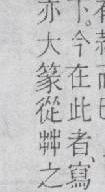 下。今在此者、寫
亦大篆從茻之